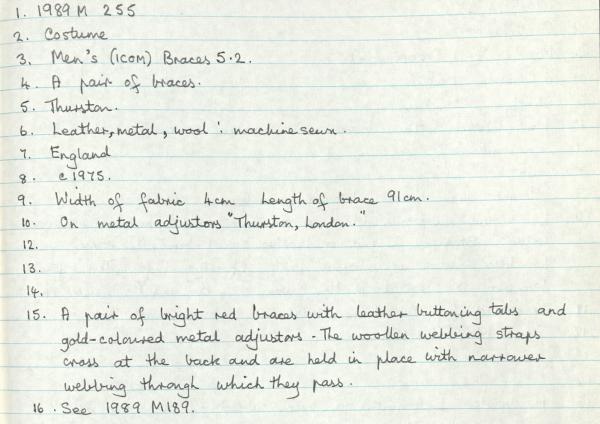 1. 1989 M 255
2. Costume
3. Men's (ICOM) Braces 5.2.
4. A pair of braces.
5. Thurston.
6. Leather, metal, wool : machine sewn.
7. England
8. c 1975.
9. Width of fabric 4cm Length of brace 91cm.
10. On metal adjustors "Thurston, London."
12.
13.
14.
15. A pair of bright red braces with leather buttoning tabs and
gold-coloured metal adjustors - The woollen webbing straps
cross at the back and are held in place with narrower
webbing through which they pass.
16. See 1989 M189.